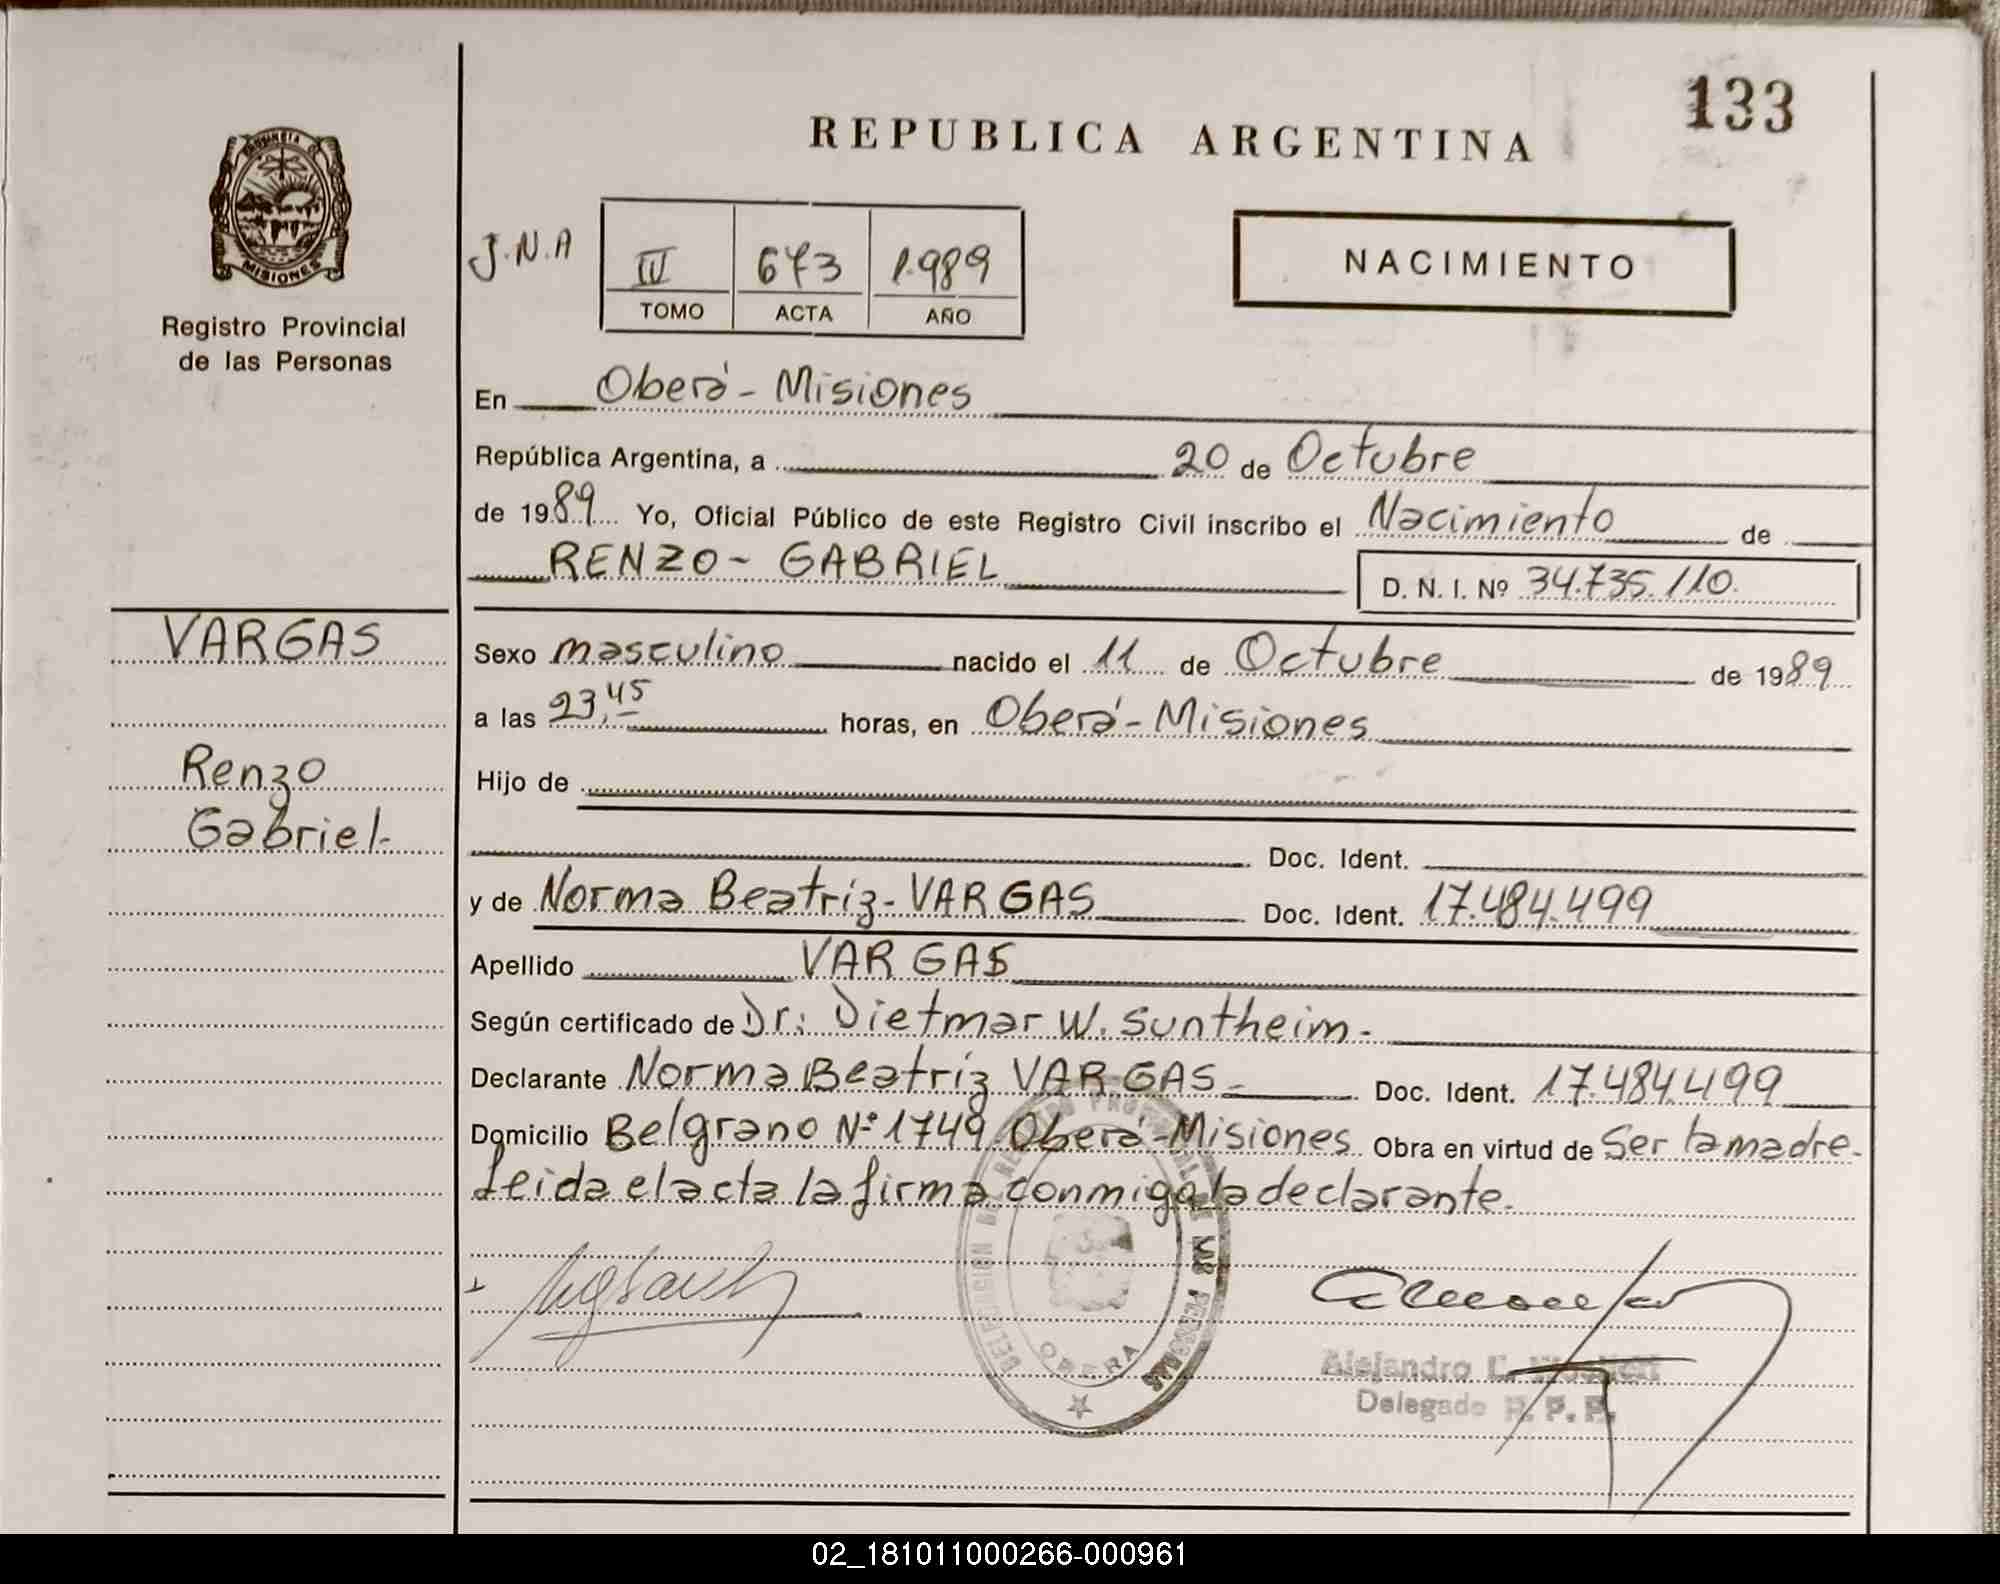 133
REPUBLICA ARGENTINA
PROVINCIA DE
MISIONES
Registro Provincial
de las Personas
J.N.A
IV 673 1.989
TOMO ACTA AÑO
NACIMIENTO
En Oberá - Misiones
República Argentina, a 20 de Octubre
de 1989 Yo, Oficial Público de este Registro Civil inscribo el Nacimiento de
RENZO - GABRIEL
D. N. I. Nº 34.735.110.
VARGAS
Renzo
Gabriel-
Sexo masculino nacido el 11 de Octubre de 1989
a las 23,45 horas, en Oberá - Misiones
Hijo de
Doc. Ident.
y de Norma Beatriz - VARGAS Doc. Ident. 17.484.499
Apellido VARGAS
Según certificado de Dr: Dietmar W. Suntheim.-
Declarante Norma Beatriz VARGAS.- Doc. Ident. 17.484.499
Domicilio Belgrano Nº 1749 Oberá - Misiones Obra en virtud de Ser la madre.
Leida el acta la firma conmigo la declarante.
DELEGACION DEL REGISTRO PROVINCIAL DE LAS PERSONAS
OBERA
Alejandro
Delegado R. P. P.
02_181011000266-000961